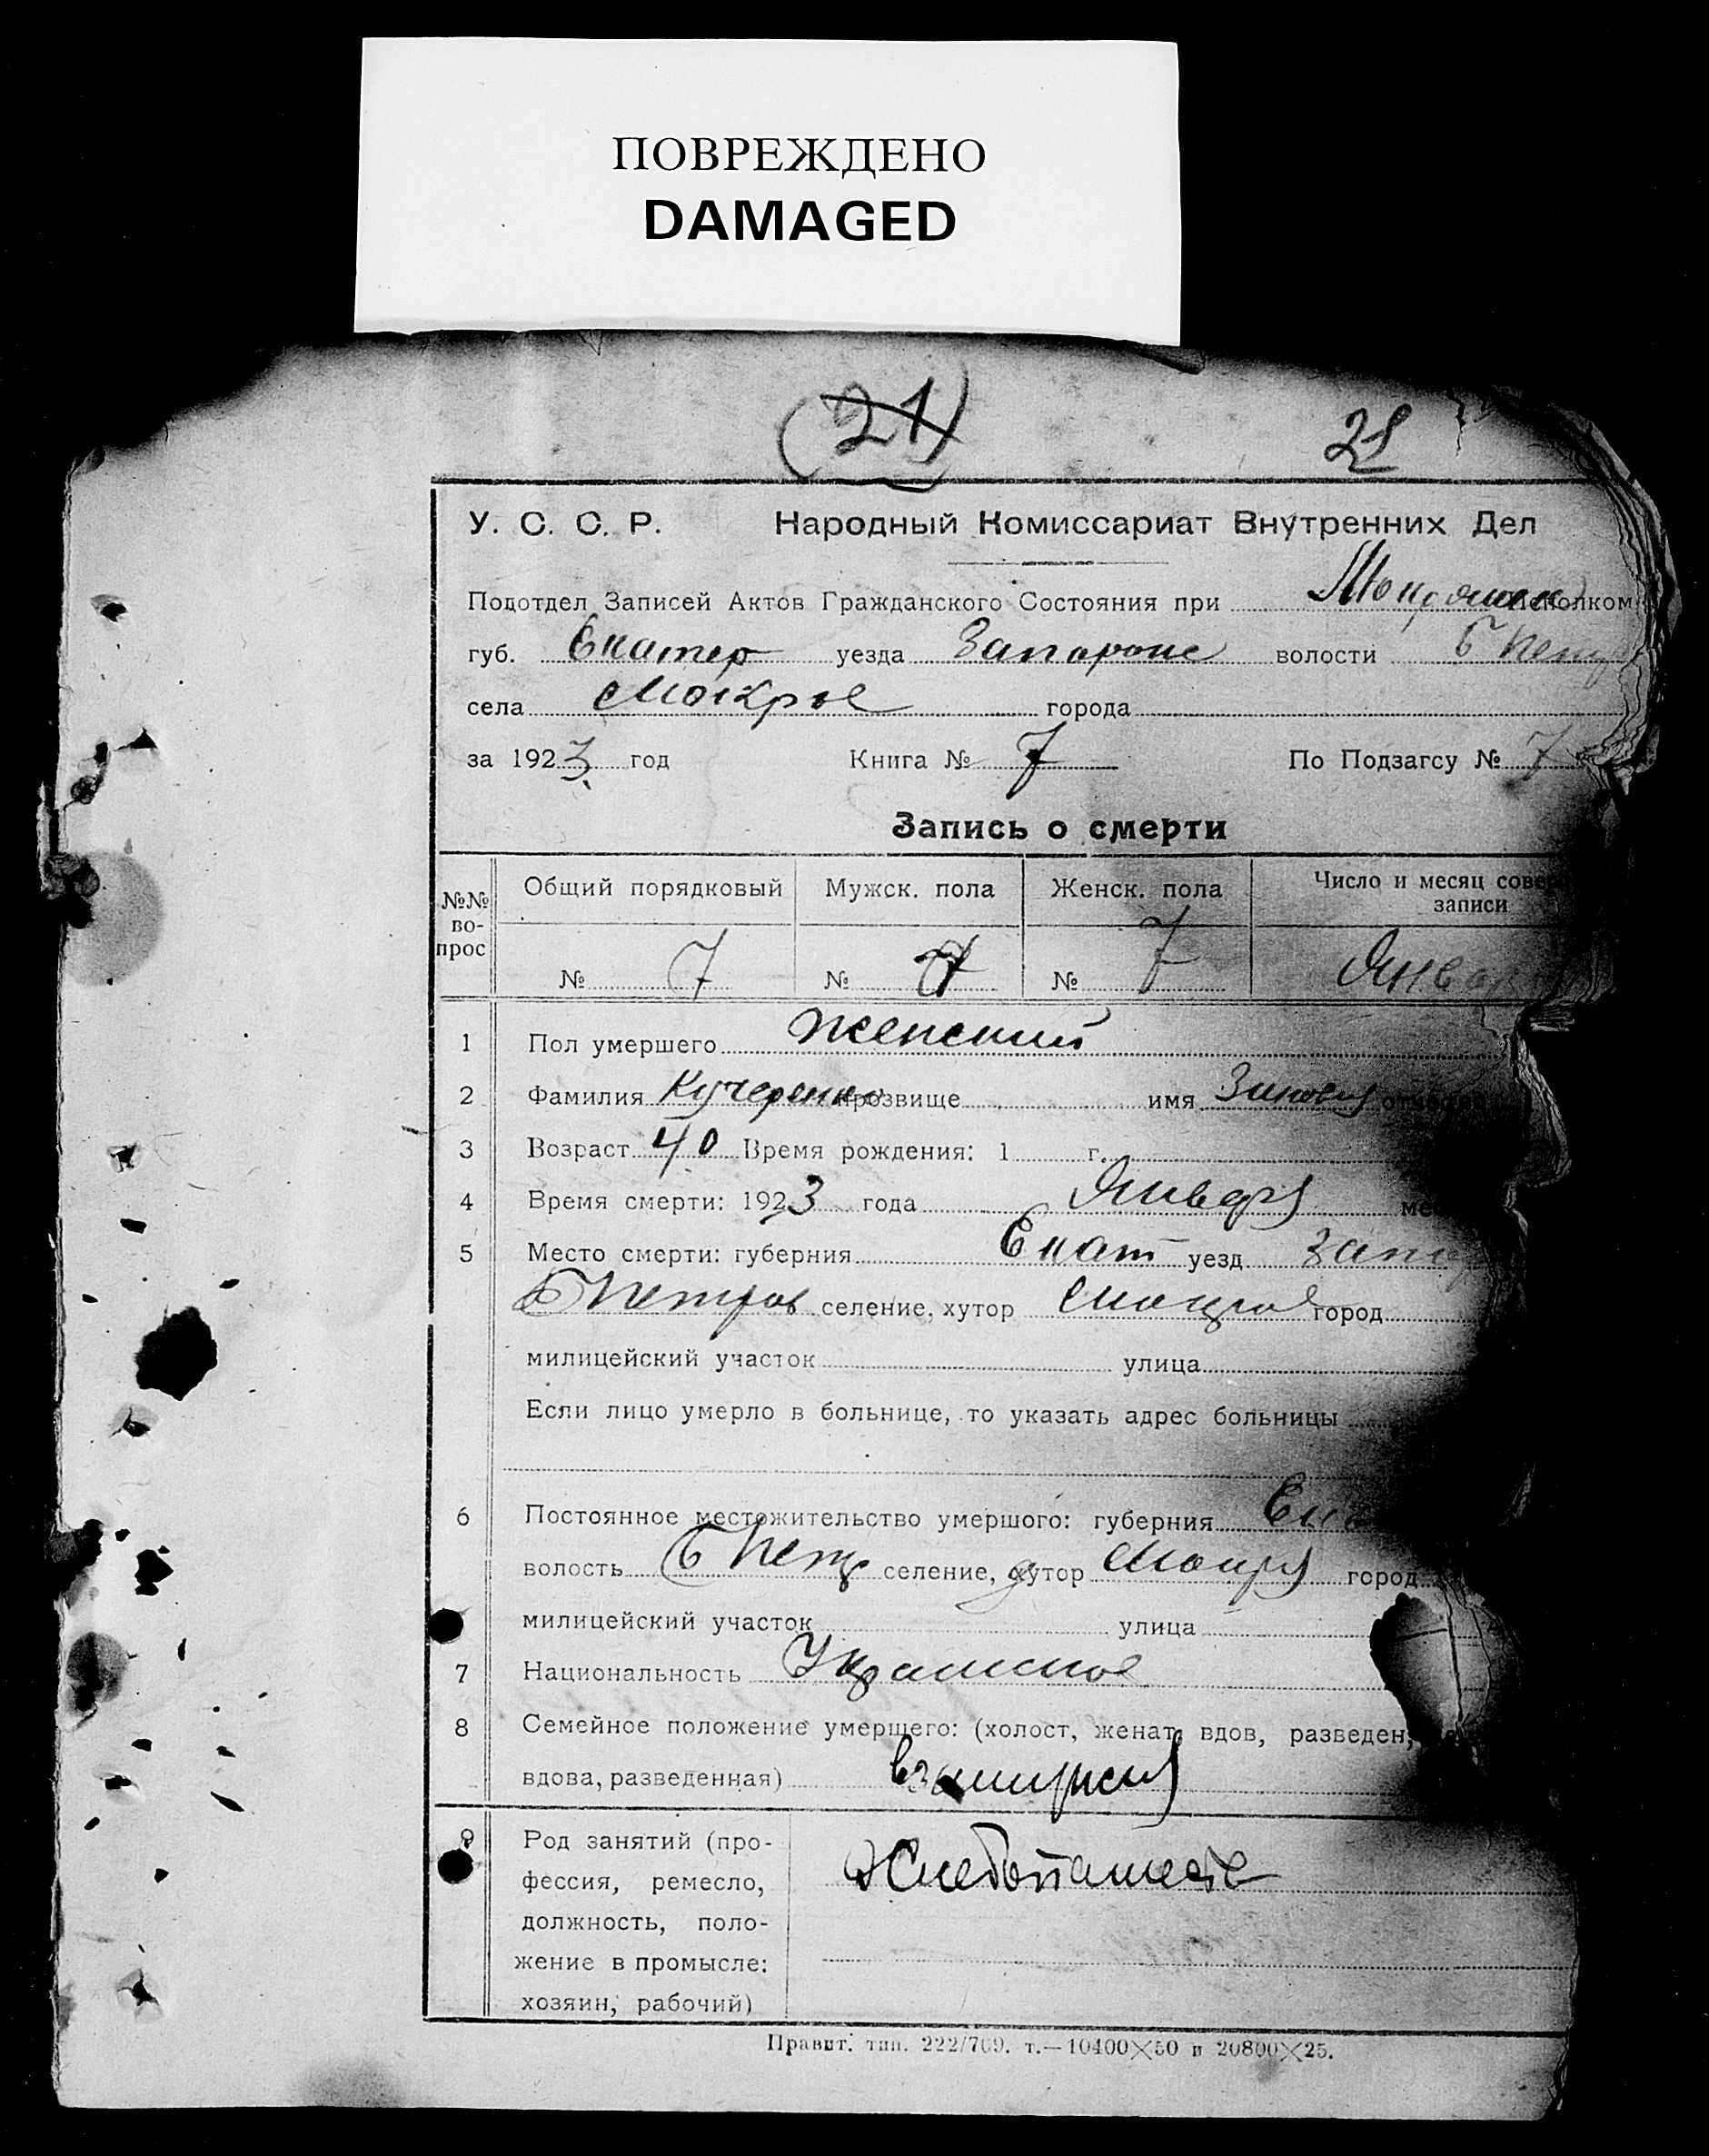 ПОВРЕЖДЕНО
DAMAGED
(21)
У. С. С. Р. Народный Комиссариат Внутренних Дел
Подотдел Записей Актов Гражданского Состояния при Исполком
губ. Екатер уезда Запорож волости Б Петр
села Мокрые города
за 1923 год Книга № 7 По Подзагсу № 7
Запись о смерти
№№ во-прос Общий порядковый Мужск. пола Женск. пола Число и месяц совер записи
№ 7 № 7 № 7 Январ
1 Пол умершего Женский
2 Фамилия Кучеренко прозвище имя Зиновия отчество
3 Возраст 40 Время рождения: 1 г.
4 Время смерти: 1923 года Января ме
5 Место смерти: губерния Екат уезд Запор
Б Петров селение, хутор Мокрые город
милицейский участок улица
Если лицо умерло в больнице, то указать адрес больницы
6 Постоянное местожительство умершого: губерния Ека
волость Б Петр селение, хутор Мокры город
милицейский участок улица
7 Национальность
8 Семейное положение умершего: (холост, женат, вдов, разведен,
вдова, разведенная)
9 Род занятий (про-
фессия, ремесло, Хлебопашест
должность, поло-
жение в промысле:
хозяин, рабочий)
Правит. тип. 222/769. т.—10400×50 и 20800×25.